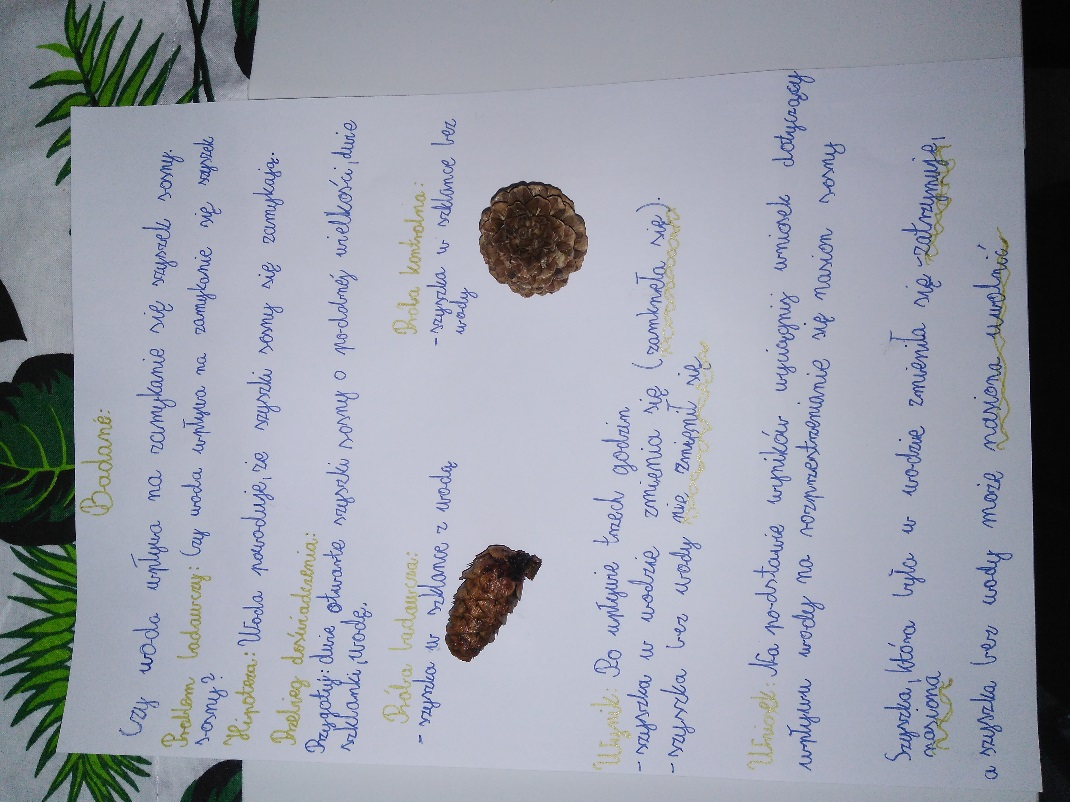 Badanie:
Czy woda wpływa na zamykanie się szyszek sosny.
Problem badawczy: Czy woda wpływa na zamykanie się szyszek
sosny?
Hipoteza: Woda powoduje, że szyszki sosny się zamykają.
Przebieg doświadczenia:
Przygotuj: dwie otwarte szyszki sosny o podobnej wielkości, dwie
szklanki, wodę.
Próba badawcza:
- szyszka w szklance z wodą
Próba kontrolna:
- szyszka w szklance bez
wody
Wynik: Po upływie trzech godzin
- szyszka w wodzie zmienia się (zamknęła się).
- szyszka bez wody nie zmienił się
Wniosek: Na podstawie wyników wyciągnij wniosek dotyczący
wpływu wody na rozprzestrzenianie się nasion sosny
Szyszka, która była w wodzie zmieniła się - zatrzymuje,
nasiona
a szyszka bez wody może nasiona uwolnić